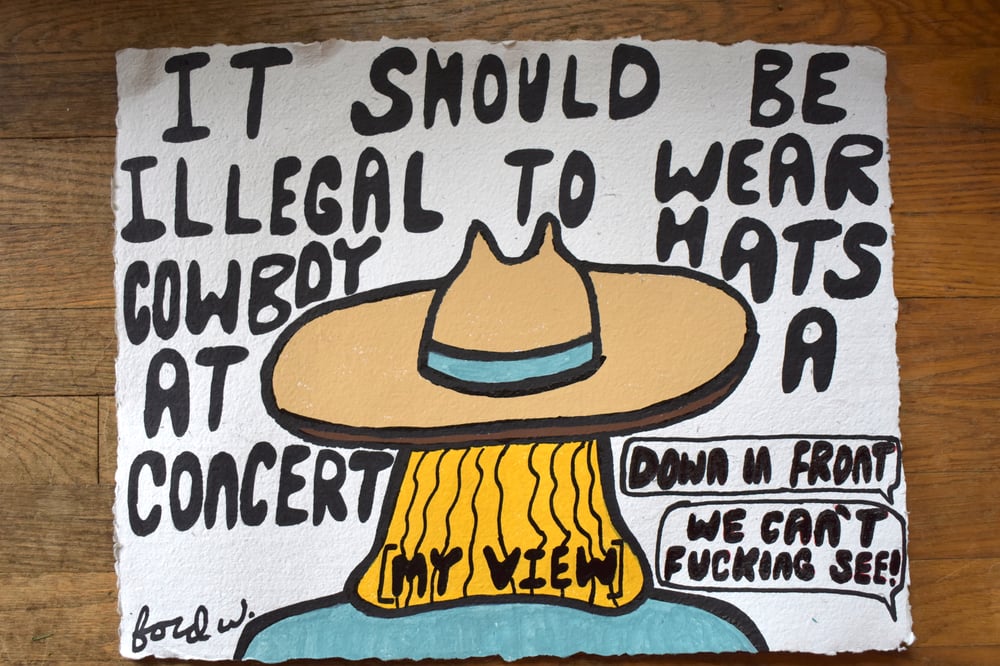 IT SHOULD BE
ILLEGAL TO WEAR
COWBOY HATS
AT A
CONCERT
DOWN IN FRONT
WE CAN'T
FUCKING SEE!
[MY VIEW]
ford w.